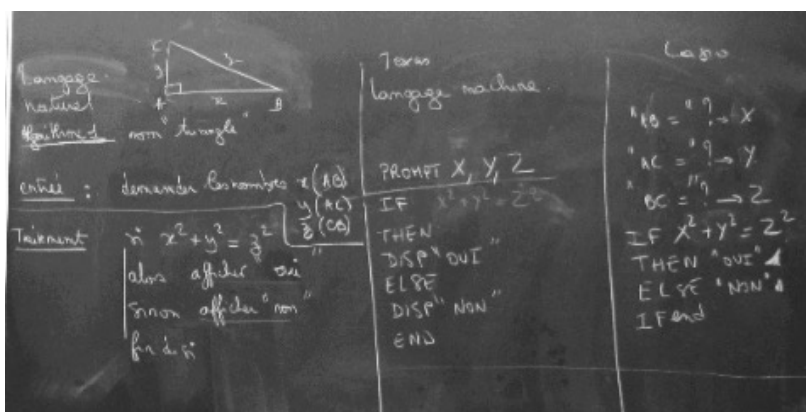 C
y
z
A
x
B
Langage
naturel
Algorithme 1 "mon triangle"
entrée : demander les nombres x (AB)
y (AC)
z (CB)
Traitement si x² + y² = z²
alors afficher "oui"
sinon afficher "non"
fin de si
Texas
Langage machine
PROMPT X, Y, Z
IF X² + Y² = Z²
THEN
DISP "OUI"
ELSE
DISP "NON"
END
Casio
"AB = " ? → X
"AC = " ? → Y
"BC = " ? → Z
IF X² + Y² = Z²
THEN "OUI" ◢
ELSE "NON" ◢
IFend